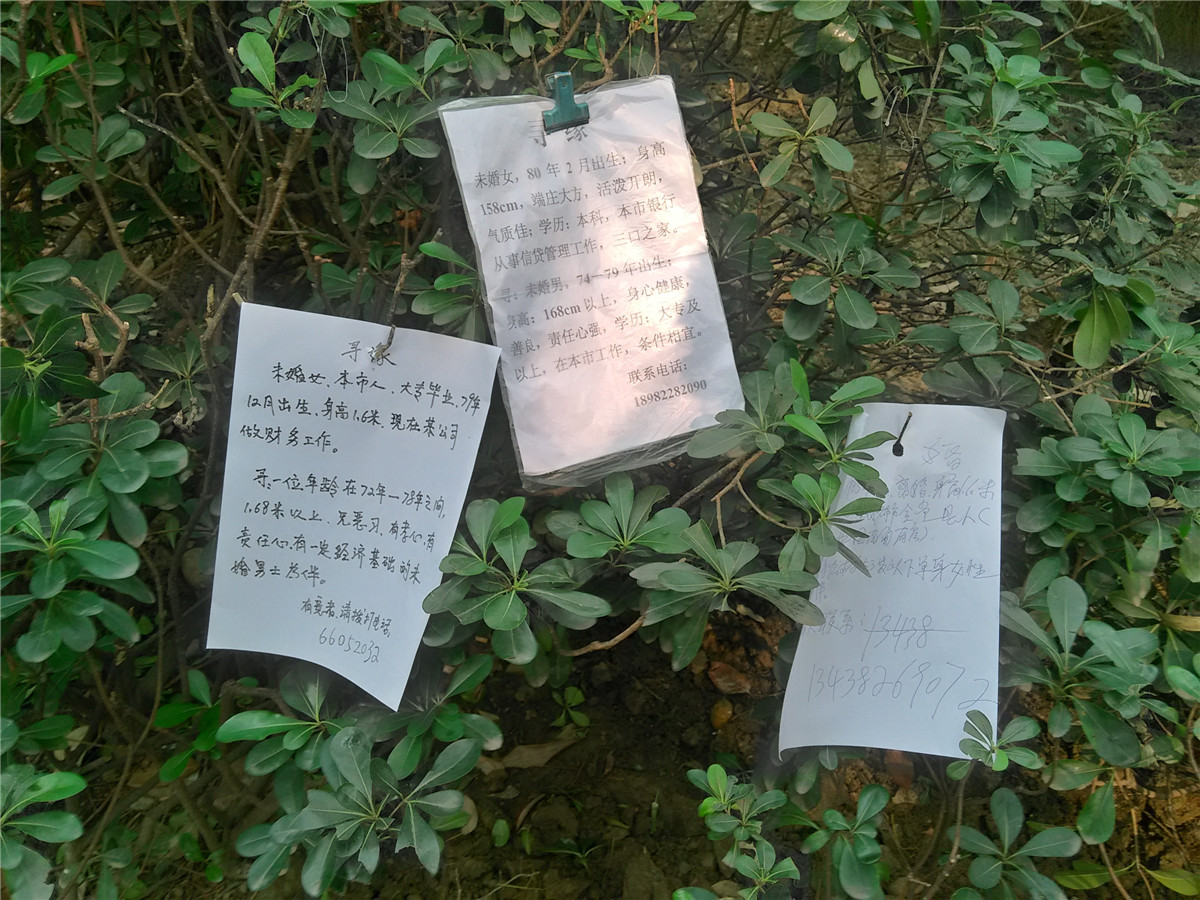 寻缘
未婚女、本市人、大专毕业、79年
12月出生、身高1.6米、现在某公司
做财务工作。
寻:一位年龄在72年—78年之间,
1.68米以上、无恶习、有孝心、有
责任心、有一定经济基础的未
婚男士为伴。
有意者、请拨打电话,
66052032
寻缘
未婚女,80年2月出生;身高
158cm,端庄大方,活泼开朗,
气质佳;学历:本科,本市银行
从事信贷管理工作,三口之家。
寻:未婚男,74—79年出生;
身高:168cm以上,身心健康,
善良,责任心强,学历:大专及
以上,在本市工作,条件相宜。
联系电话:
18982282090
离婚、身高1.6米
县人(
下单身女性
联系:13438
13438269072